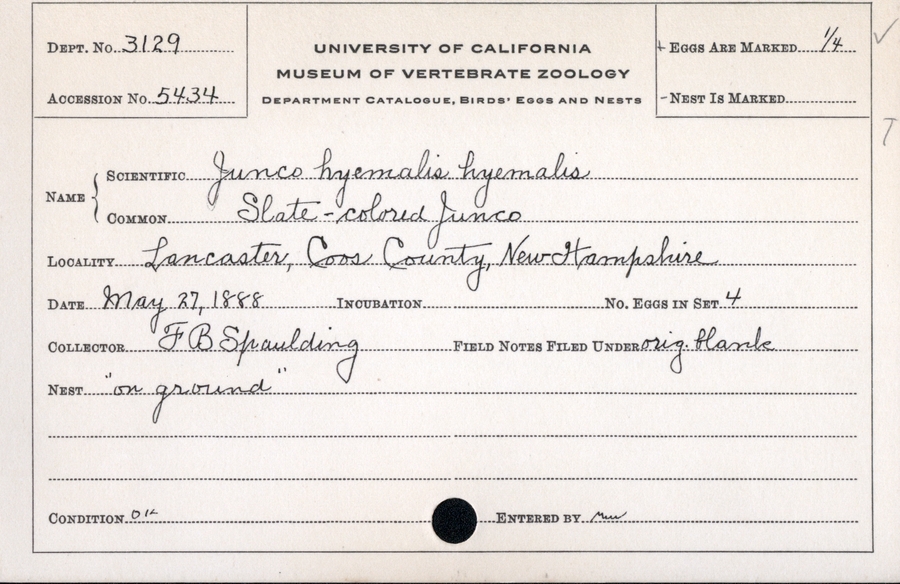 DEPT. NO. 3129
ACCESSION NO. 5434
UNIVERSITY OF CALIFORNIA
MUSEUM OF VERTEBRATE ZOOLOGY
DEPARTMENT CATALOGUE, BIRDS' EGGS AND NESTS
+ EGGS ARE MARKED 1/4 ✓
- NEST IS MARKED
T
NAME { SCIENTIFIC Junco hyemalis hyemalis
COMMON Slate-colored Junco
LOCALITY Lancaster, Coos County, New Hampshire
DATE May 27, 1888 INCUBATION NO. EGGS IN SET 4
COLLECTOR F B Spaulding FIELD NOTES FILED UNDER orig. blank
NEST "on ground"
CONDITION OK ENTERED BY